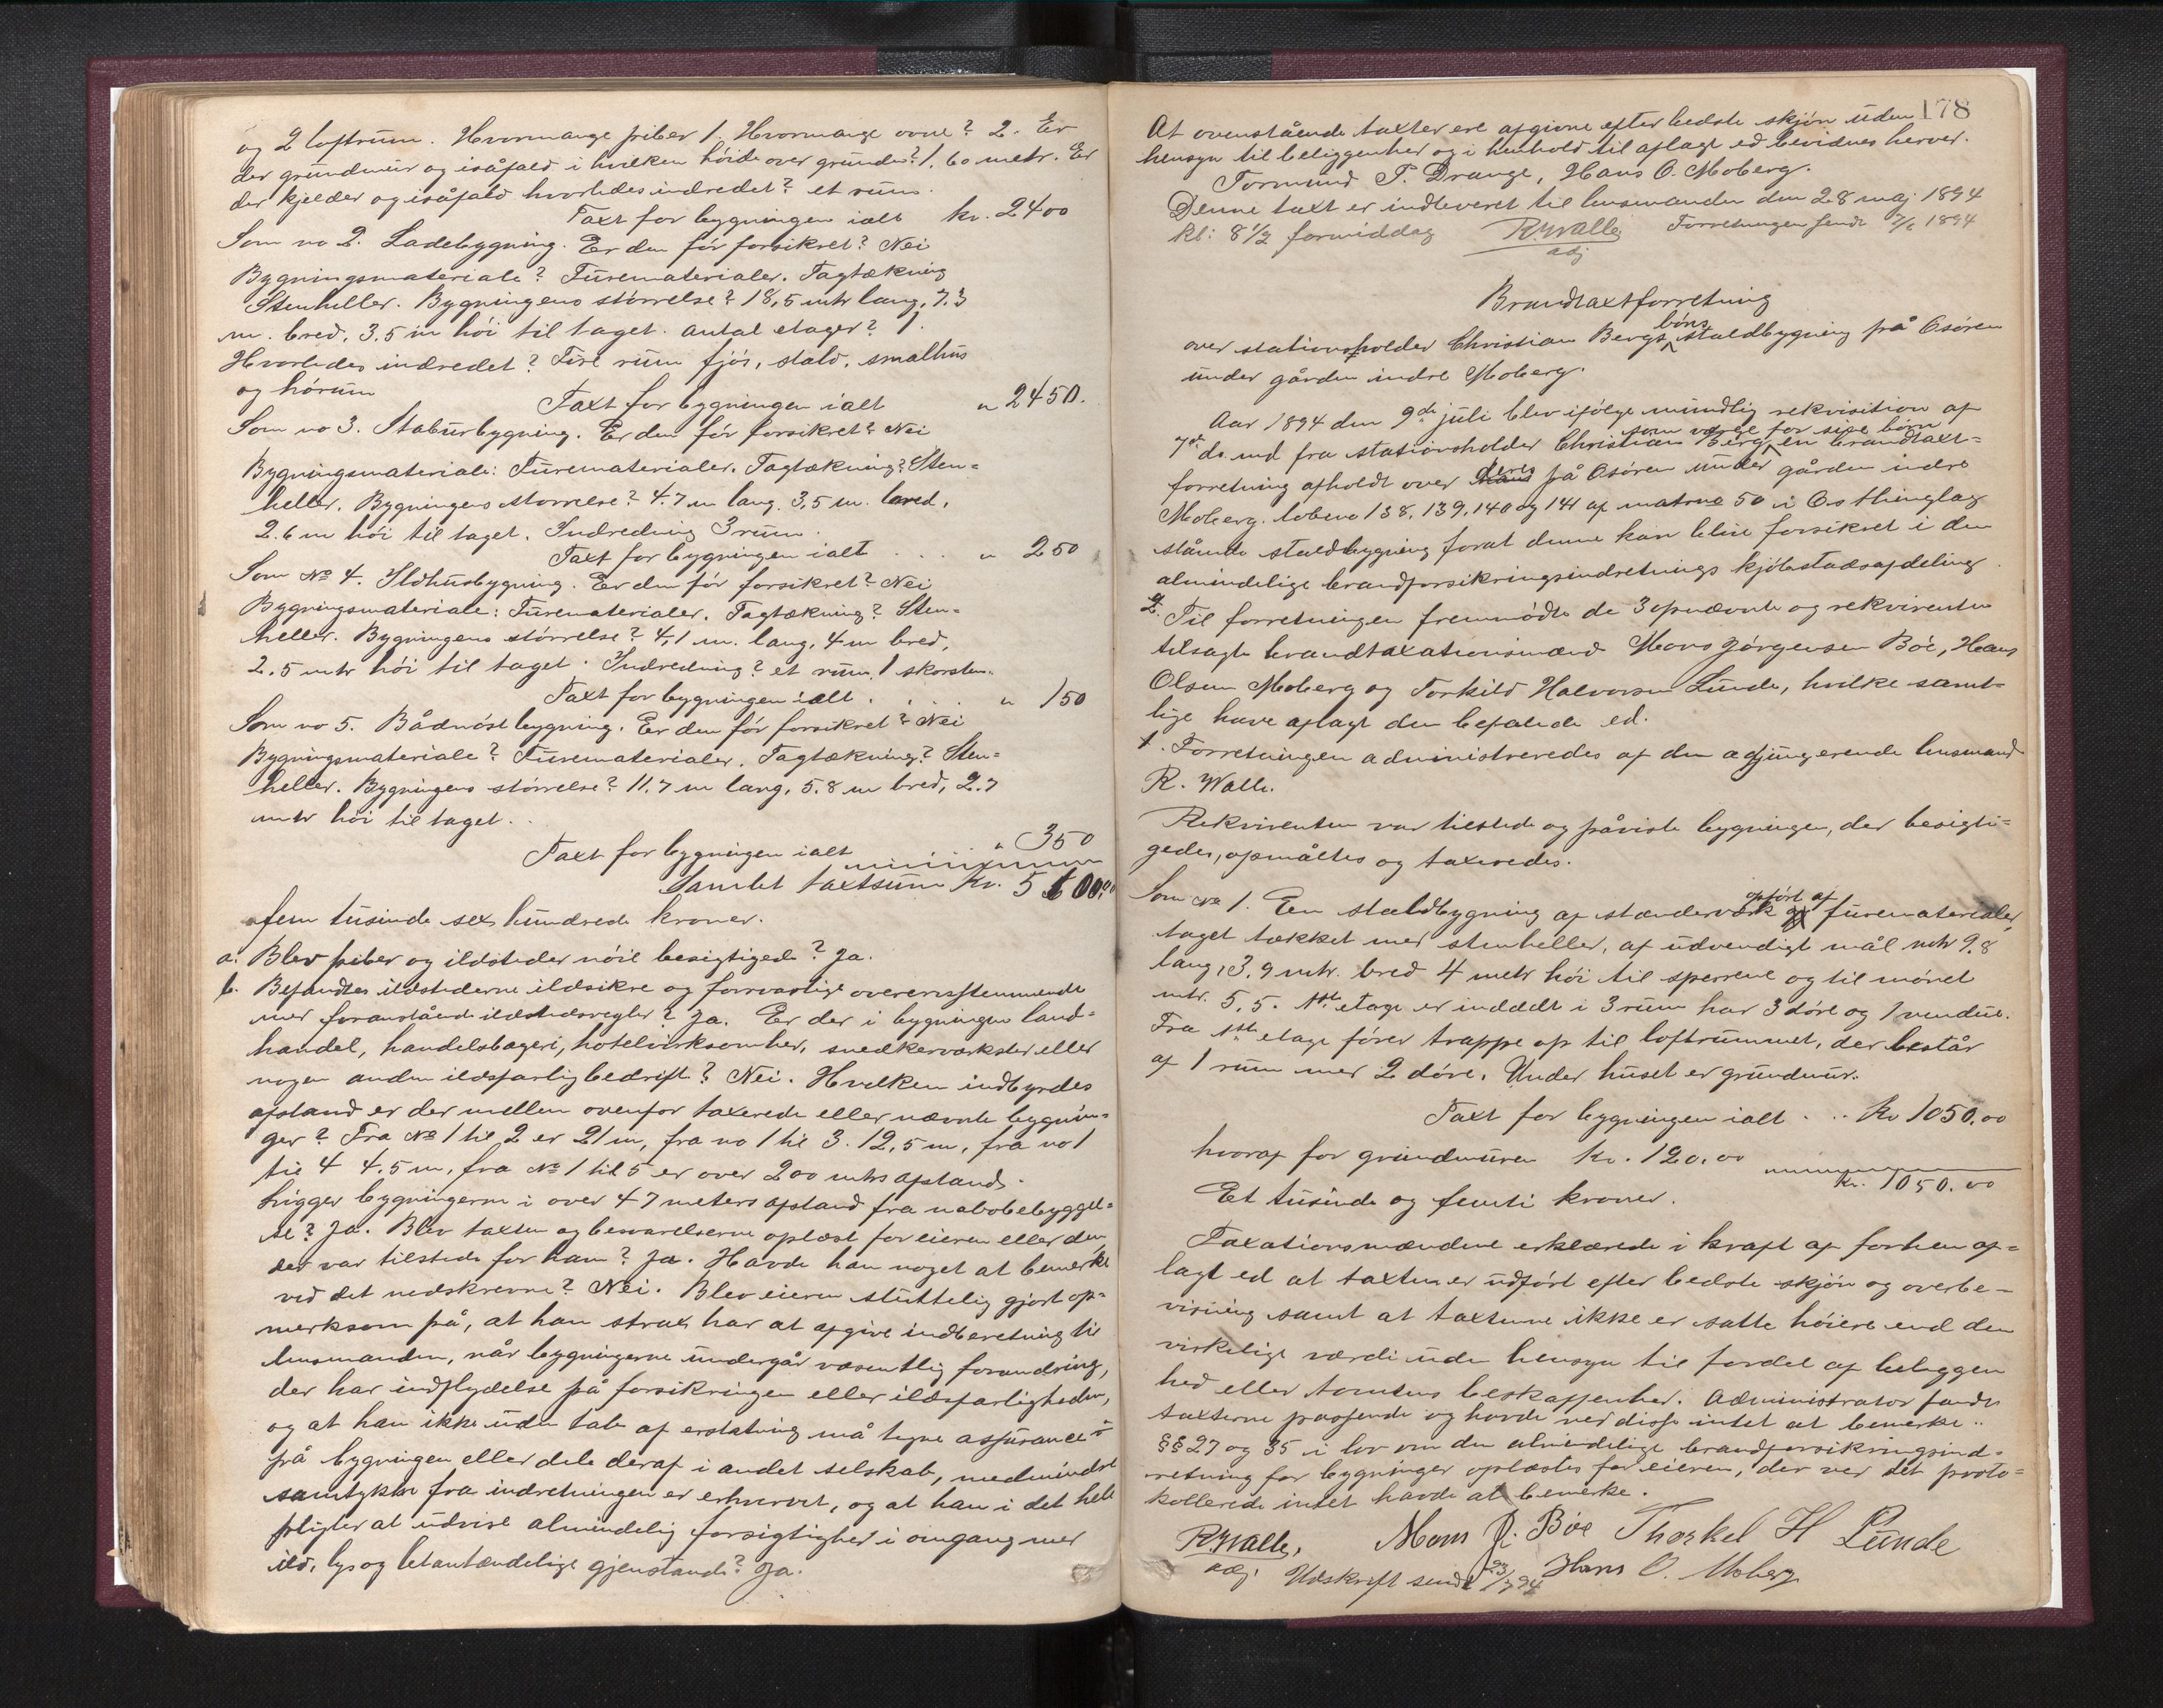 og 2 loftrum. Hvormange piber 1. Hvormange ovne? 2. Er
der grundmur og isåfald i hvilken høide over grunden? 1,60 metr. Er
der kjelder og isåfald hvorledes indredet? et rum.
Taxt for bygningen ialt kr. 2400
Som no 2. Ladebygning. Er den før forsikret? Nei
Bygningsmateriale? Furematerialer. Tagtækning
Stenheller. Bygningens størrelse? 18,5 mtr lang, 7.3
m. bred, 3.5 m høi til taget. antal etager? 1.
Hvorledes indredet? Fire rum fjøs, stald, smalhus
og hørum
Taxt for bygningen ialt " 2450.
Som no 3. Stabursbygning. Er den før forsikret? Nei
Bygningsmateriale: Furematerialer. Tagtækning? Sten=
heller. Bygningens størrelse? 4.7 m lang. 3,5 m. bred.
2.6 m høi til taget. Indredning 3 rum.
Taxt for bygningen ialt . . . " 250
Som No 4. Ildhusbygning. Er den før forsikret? Nei
Bygningsmateriale: Furematerialer. Tagtækning? Sten=
heller. Bygningens størrelse? 4,1 m. lang, 4 m bred,
2.5 mtr høi til taget. Indredning? et rum. 1 skorsten.
Taxt for bygningen ialt . . . " 150
Som no 5. Bådnøstbygning. Er den før forsikret? Nei
Bygningsmateriale? Furematerialer. Tagtækning? Sten=
heller. Bygningens størrelse? 11.7 m lang, 5.8 m bred, 2.7
mtr høi til taget.
Taxt for bygningen ialt " 350
Samlet taxtsum Kr. 5600.00
fem tusinde sex hundrede kroner.
a. Blev piber og ildsteder nøie besigtigede? Ja.
b. Befandtes ildstederne ildsikre og forsvarlige overensstemmende
med foranstående ildstedsregler? Ja. Er der i bygningen land=
handel, handelsbageri, hotelvirksomhed, snedkerværksted eller
nogen anden ildsfarlig bedrift? Nei. Hvilken indbyrdes
afstand er der mellem ovenfor taxerede eller nævnte bygnin=
ger? Fra No 1 til 2 er 21 m, fra no 1 til 3. 12,5 m, fra no 1
til 4 4.5 m, fra No 1 til 5 er over 200 mtrs afstand.
Ligger bygningerne i over 47 meters afstand fra nabobebyggel=
se? Ja. Blev taxten og besvarelserne oplæst for eieren eller den
der var tilstede for ham? Ja. Havde han noget at bemærke
ved det nedskrevne? Nei. Blev eieren sluttelig gjort op=
merksom på, at han strax har at afgive indberetning til
lensmanden, når bygningerne undergår væsentlig forandring,
der har indflydelse på forsikringen eller ildsfarligheden,
og at han ikke uden tab af erstatning må tegne assurance
på bygningen eller dele deraf i andet selskab, medmindre
samtykke fra indretningen er erhvervet, og at han i det hele
pligter at udvise almindelig forsigtighed i omgang med
ild, lys og letantændelige gjenstande? Ja.
178
At ovenstående taxter ere afgivne efter bedste skjøn uden
hensyn til beliggenhed og i henhold til aflagt ed bevidnes herved.
Tormund T. Drange, Hans O. Moberg.
Denne taxt er indleveret til lensmanden den 28 maj 1894
kl: 8 1/2 formiddag RWalle Forretningen sendt 7/6 1894
adj
Brandtaxtforretning
børns
over stationsholder Christian Bergs staldbygning på Osøren
under gården indre Moberg.
Aar 1894 den 9de juli blev ifølge mundlig rekvisition af
som værge for sine børn
7de ds. md fra stationsholder Christian Berg en brandtaxt=
forretning afholdt over deres på Osøren under gården indre
Moberg. løbeno 138, 139, 140 og 141 af matrno 50 i Os thinglag
stående staldbygning forat denne kan blive forsikret i den
almindelige brandforsikringsindretnings kjøbstadsafdeling.
2. Til forretningen fremmødte de 3 opnævnte og rekvirenten
tilsagte brandtaxationsmænd Mons Jørgensen Bøe, Hans
Olsen Moberg og Torkild Halvorsen Lunde, hvilke samt=
lige have aflagt den befalede ed.
1. Forretningen administreredes af den adjungerende lensmand
R. Walle.
Rekvirenten var tilstede og påviste bygningen, der besigti=
gedes, opmåltes og taxeredes.
opført af
Som No 1. Een staldbygning af stænderværk furematerialer,
taget tækket med stenheller, af udvendigt mål mtr 9.8
lang, 3.9 mtr. bred 4 metr høi til sperrene og til mønet
mtr. 5.5. 1ste etage er inddelt i 3 rum har 3 døre og 1 vindue.
Fra 1ste etage fører trappe op til loftrummet, der består
af 1 rum med 2 døre. Under huset er grundmur.
Taxt for bygningen ialt . . . Kr 1050.00
hvoraf for grundmuren Kr. 120.00
Kr. 1050.00
Et tusinde og femti kroner.
Taxationsmændene erklærede i kraft af forhen af=
lagt ed at taxten er udført efter bedste skjøn og overbe=
visning samt at taxterne ikke er satte høiere end den
virkelige værdi uden hensyn til fordel af beliggen
hed eller tomtens beskaffenhed. Administrator fandt
taxterne passende og havde ved disse intet at bemerke.
§§ 27 og 35 i lov om den almindelige brandforsikringsind=
retning for bygninger oplæstes for eieren, der ved det proto=
kollerede intet havde at bemerke.
RWalle, Mons J. Bøe Thorkel H Lunde
adj. Udskrift sendt 23/7 94 Hans O. Moberg